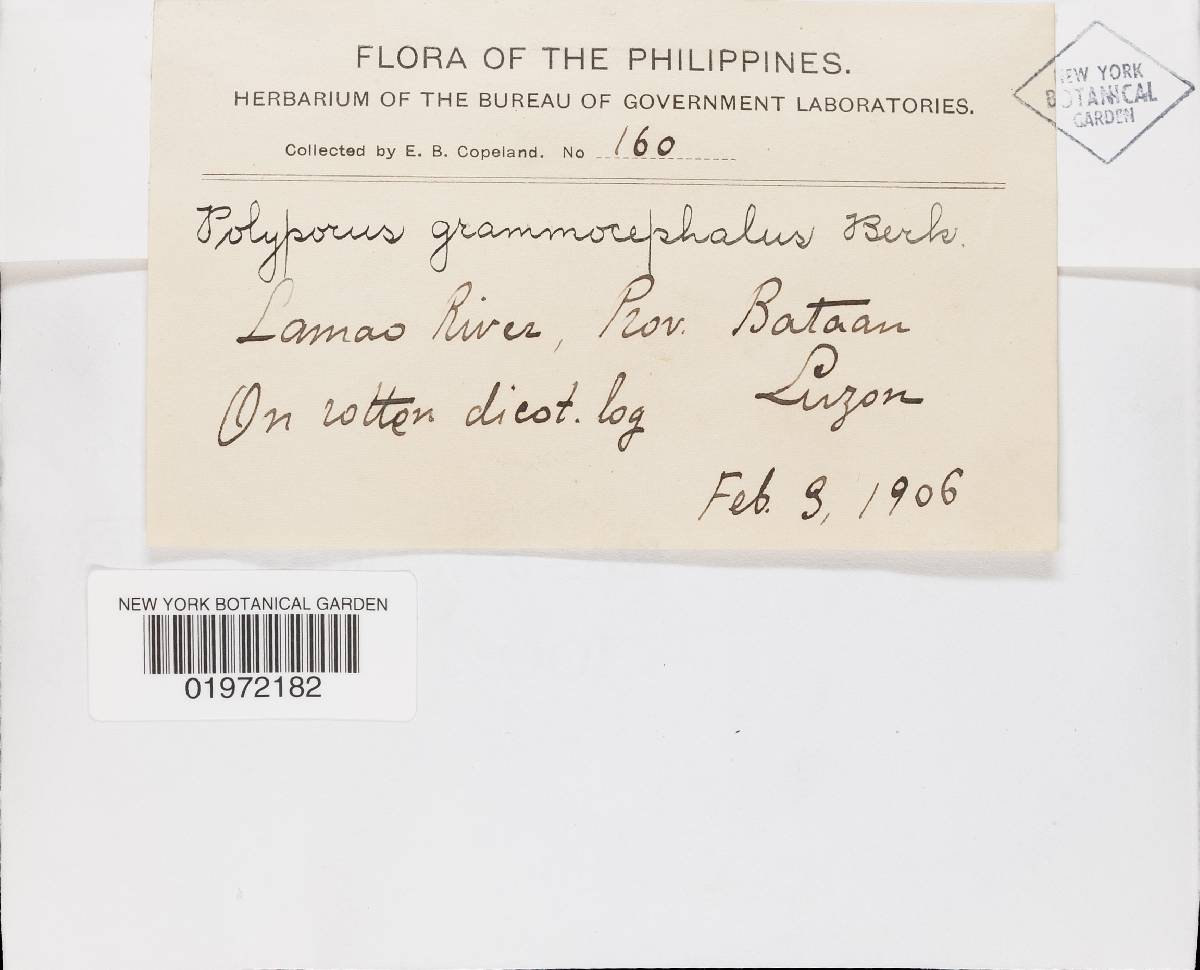 FLORA OF THE PHILIPPINES.
HERBARIUM OF THE BUREAU OF GOVERNMENT LABORATORIES.
Collected by E. B. Copeland. No 160
Polyporus grammocephalus Berk.
Lamao River, Prov. Bataan
Luzon
On rotten dicot. log
Feb. 3, 1906
NEW YORK
BOTANICAL
GARDEN
NEW YORK BOTANICAL GARDEN
01972182